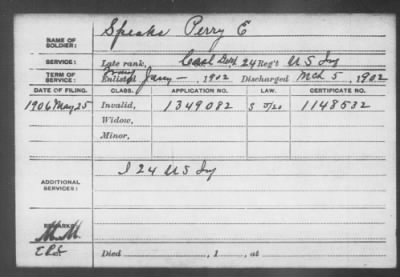 NAME OF SOLDIER: Speaks Perry E
SERVICE: Late rank, 24 Reg't U S Inf
TERM OF SERVICE: Enlisted Jany —, 1902 Discharged Mch 5, 1902
DATE OF FILING. CLASS. APPLICATION NO. LAW. CERTIFICATE NO.
1906 May 25 Invalid, 1349082 1148532
Widow,
Minor,
ADDITIONAL SERVICES: I 24 U S Inf
REMARKS:
M.M.
Died , 1 , at